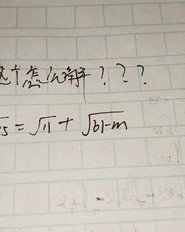 这个怎么解???
5 = √11 + √61-m